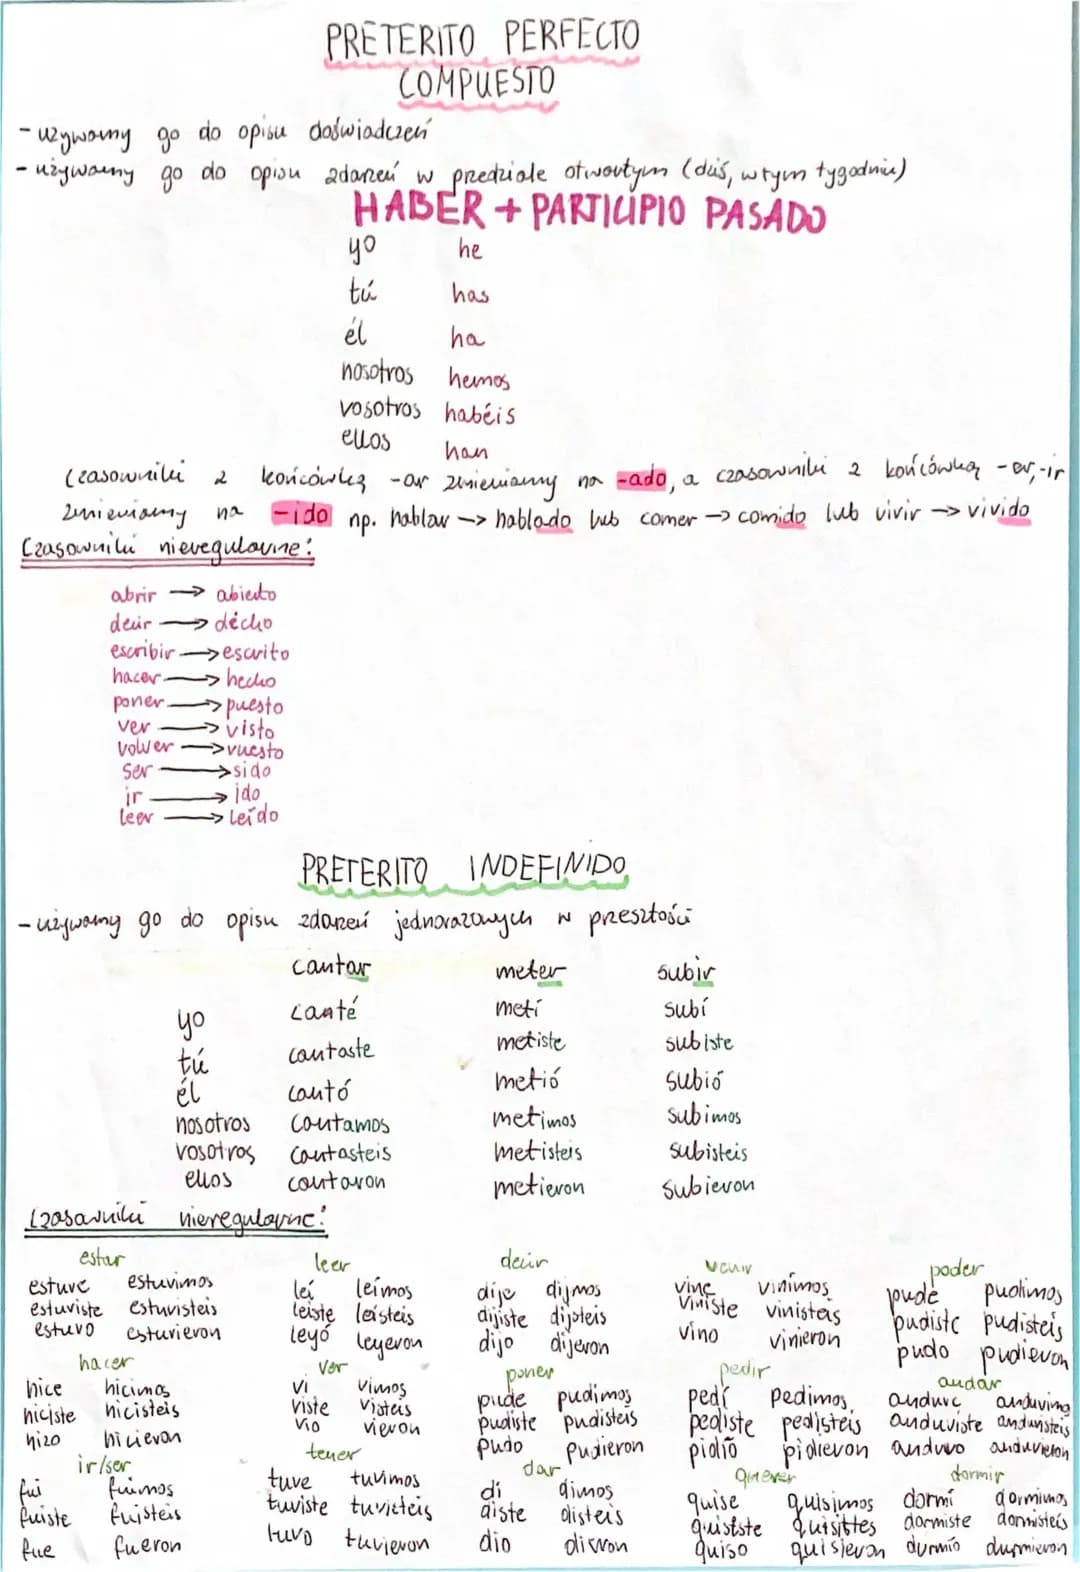 PRETERITO PERFECTO
COMPUESTO
- używamy go do opisu doświadczeń
- używamy go do opisu zdarzeń w przedziale otwartym (dziś, w tym tygodniu)
HABER + PARTICIPIO PASADO
yo he
tú has
él ha
nosotros hemos
vosotros habéis
ellos han
Czasowniki z końcówką -ar zmieniamy na -ado, a czasowniki z końcówką -er, -ir
zmieniamy na -ido np. hablar -> hablado lub comer -> comido lub vivir -> vivido
Czasowniki nieregularne:
abrir -> abierto
decir -> décho
escribir -> escrito
hacer -> hecho
poner -> puesto
ver -> visto
volver -> vuesto
ser -> sido
ir -> ido
leer -> leído
PRETERITO INDEFINIDO
- używamy go do opisu zdarzeń jednorazowych w przeszłości
cantar meter subir
yo canté metí subí
tú cantaste metiste subiste
él cantó metió subió
nosotros cantamos metimos subimos
vosotros cantasteis metisteis subisteis
ellos cantaron metieron subieron
Czasowniki nieregularne:
estar leer decir venir poder
estuve estuvimos leí leímos dije dijmos vine vinimos pude pudimos
estuviste estuvisteis leiste leísteis dijiste dijsteis viniste vinisteis pudiste pudisteis
estuvo estuvieron leyó leyeron dijo dijeron vino vinieron pudo pudieron
hacer ver poner pedir andar
hice hicimos vi vimos pude pudimos pedí pedimos anduve anduvimo
hiciste hicisteis viste visteis pudiste pudisteis pediste pedisteis anduviste anduvisteis
hizo hicieron vio vieron pudo pudieron pidió pidieron anduvo anduvieron
ir/ser tener dar querer dormir
fui fuimos tuve tuvimos di dimos quise quisimos dormí dormimos
fuiste fuisteis tuviste tuvisteis diste disteis quisiste quisittes dormiste dormisteis
fue fueron tuvo tuvieron dio dieron quiso quisieron durmío durmieron